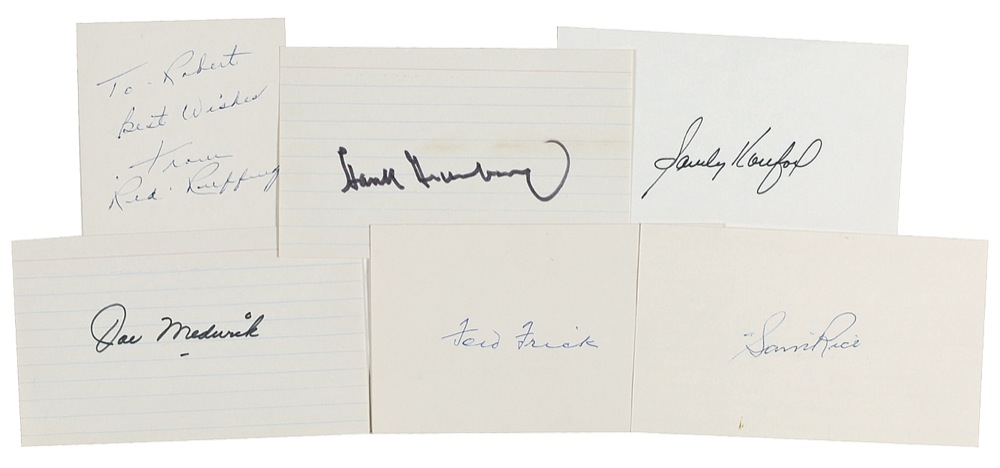 To - Robert
Best Wishes
From
"Red" Ruffing
Hank Greenberg
Sandy Koufax
Joe Medwick
Ford Frick
"Sam" Rice